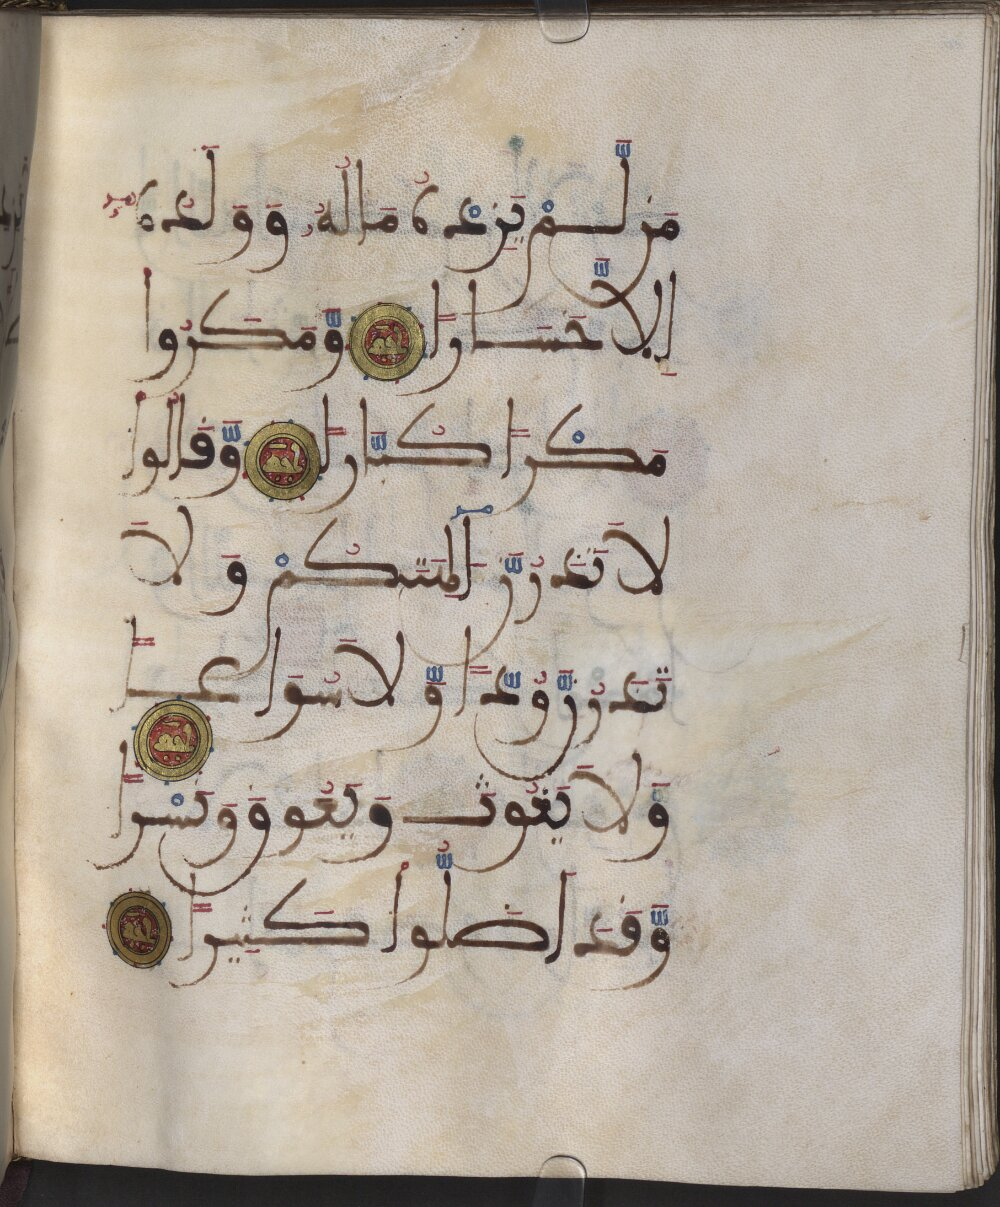 مَن لَّمْ يَزِدْهُ مَالُهُ وَوَلَدُهُ
إِلَّا خَسَارًا وَمَكَرُوا
مَكْرًا كُبَّارًا وَّقَالُوا
لَا تَذَرُنَّ ءَالِهَتَكُمْ وَلَا
تَذَرُنَّ وُدًّا وَّلَا سُوَاعًا
وَّلَا يَغُوثَ وَيَعُوقَ وَنَسْرًا
وَّقَدْ أَضَلُّوا كَثِيرًا